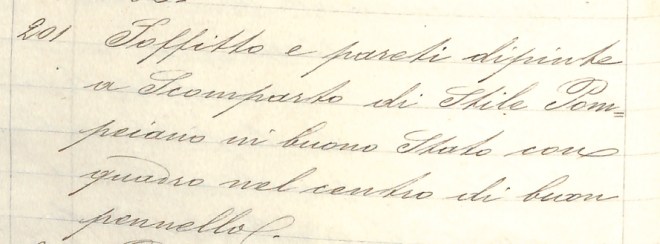 201 Soffitto e pareti dipinte
a Scomparto di Stile Pom=
peiano in buono Stato con
quadro nel centro di buon
pennello.